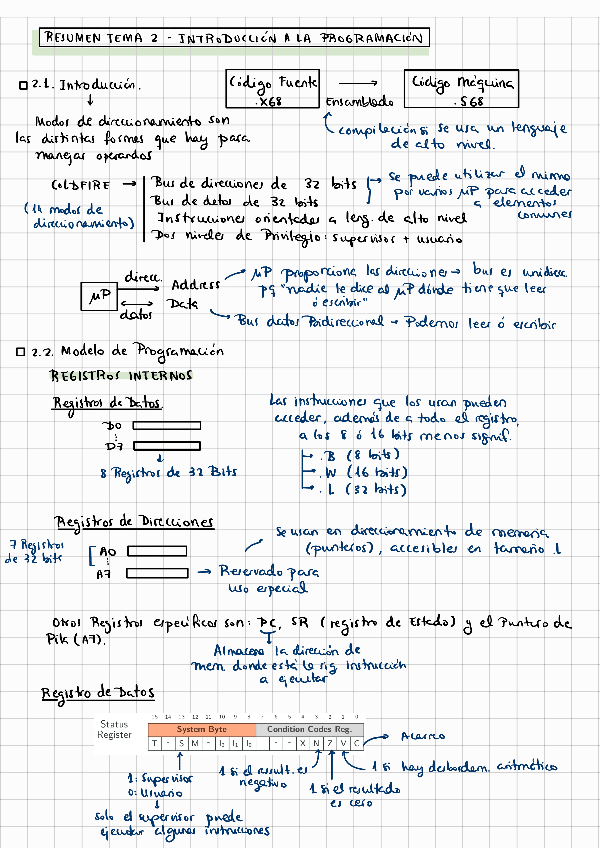 RESUMEN TEMA 2 - INTRODUCCIÓN A LA PROGRAMACIÓN
2.1. Introducción.
Código Fuente
.X68
Código Máquina
.S68
Ensamblado
compilación si se usa un lenguaje
de alto nivel.
Modos de direccionamiento son
las distintas formas que hay para
manejar operandos
ColdFIRE →
(14 modos de
direccionamiento)
Bus de direcciones de 32 bits
Bus de datos de 32 bits
Instrucciones orientadas a leng. de alto nivel
Dos niveles de Privilegio: supervisor + usuario
Se puede utilizar el mismo
por varios µP para acceder
a elementos
comunes
µP
direcc.
datos
Address
Data
µP proporciona las direcciones → bus es unidirecc.
pq "nadie le dice al µP dónde tiene que leer
ó escribir"
Bus datos Bidireccional → Podemos leer ó escribir
2.2. Modelo de Programación
REGISTROS INTERNOS
Registros de Datos.
D0
D7
8 Registros de 32 Bits
Las instrucciones que los usan pueden
acceder, además de a todo el registro,
a los 8 ó 16 bits menos signif.
.B (8 bits)
.W (16 bits)
.L (32 bits)
Registros de Direcciones
7 Registros
de 32 bits
A0
A7
→ Reservado para
uso especial
Se usan en direccionamiento de memoria
(punteros), accesibles en tamaño .L
Otros Registros específicos son: PC, SR (registro de Estado) y el Puntero de
Pila (A7).
Almacena la dirección de
mem. donde está la sig instrucción
a ejecutar
Registro de Datos
15 14 13 12 11 10 9 8 7 6 5 4 3 2 1 0
Status
Register
System Byte
Condition Codes Reg.
T - S M - I₂ I₁ I₀ - - - X N Z V C
Acarreo
1: Supervisor
0: Usuario
1 si el result. es
negativo
1 si el resultado
es cero
1 si hay desbordam. aritmético
solo el supervisor puede
ejecutar algunas instrucciones